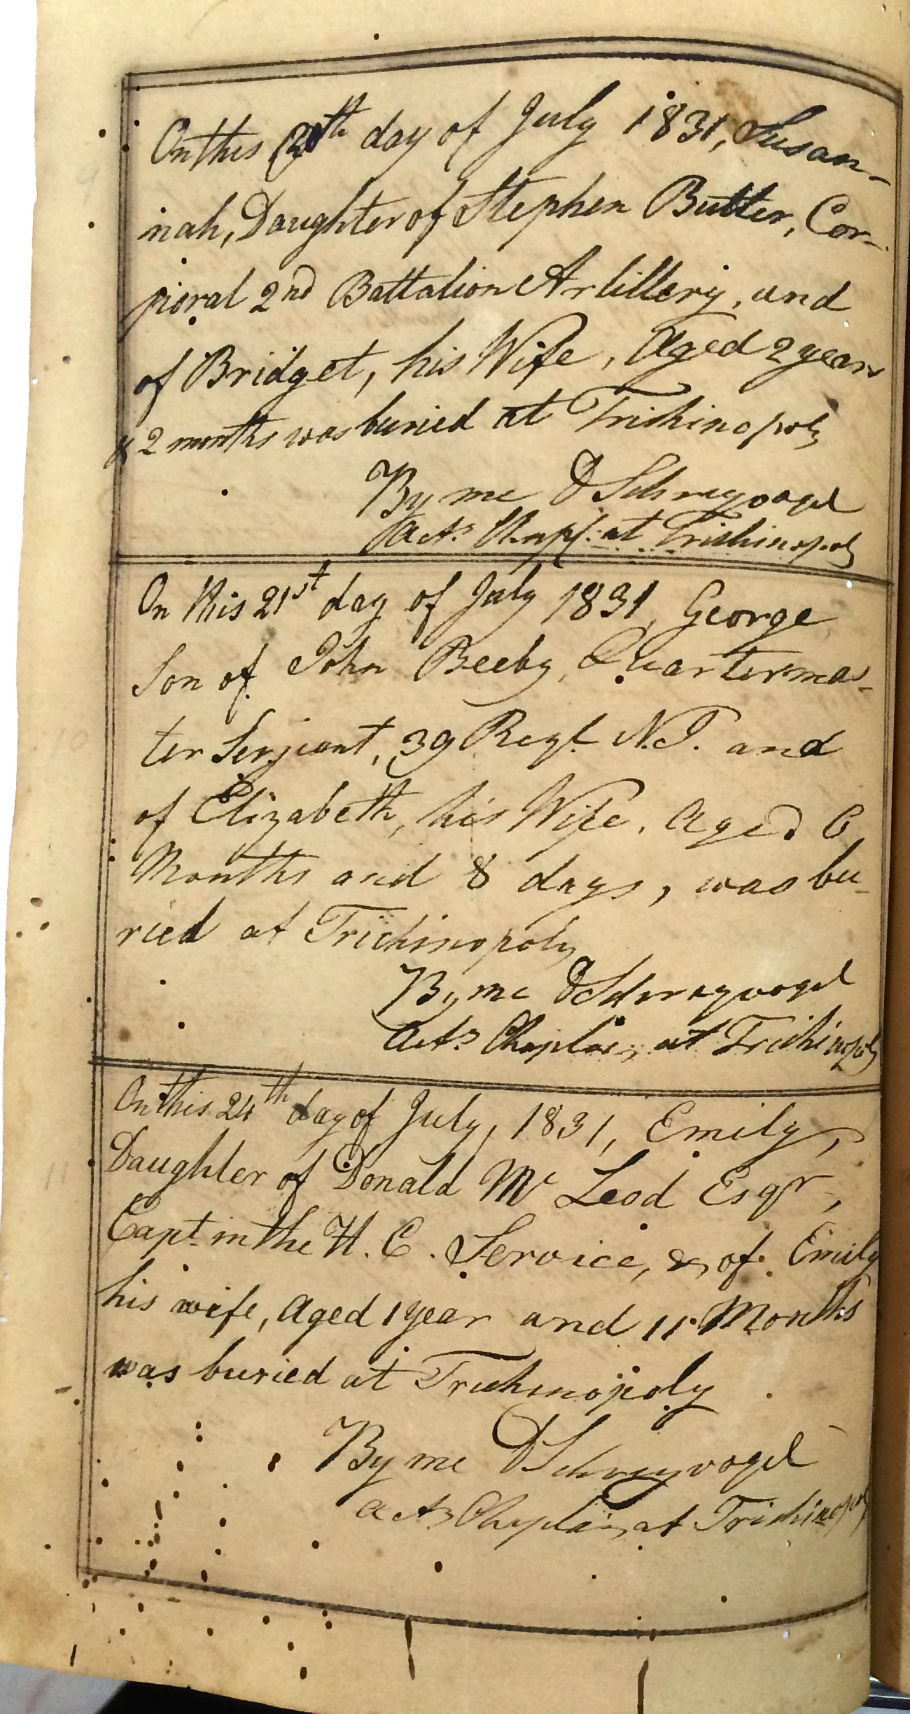 On this 20th day of July 1831, Susan-
nah, Daughter of Stephen Butler, Cor-
poral 2nd Battalion Artillery, and
of Bridget, his Wife, Aged 2 years
& 2 months was buried at Trichinopoly
By me D Schreyvogel
Actg Chapl. at Trichinopoly
On this 21st day of July 1831, George
Son of John Beeby, Quarterma-
ter Serjeant, 39 Regt. N.I. and
of Elizabeth, his Wife, Aged 6
Months and 8 days, was bu-
ried at Trichinopoly
By me D Schreyvogel
Actg Chaplain at Trichinopoly
On this 24th day of July, 1831, Emily,
Daughter of Donald Mc Leod Esqr,
Capt. in the H. C. Service, & of Emily
his wife, Aged 1 year and 11 Months
was buried at Trichinopoly
By me D Schreyvogel
Actg Chaplain at Trichinopoly